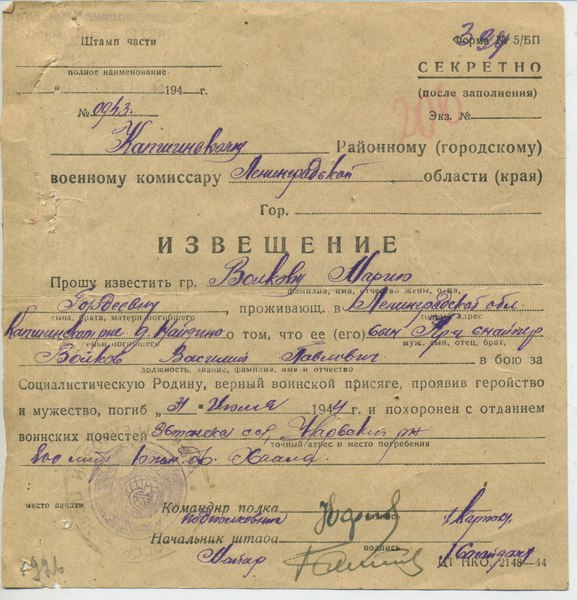 Штамп части
Форма № 5/БП
394
полное наименование
СЕКРЕТНО
„ “ 194 г.
(после заполнения)
№ 0943.
Экз. №
Капшинскому Районному (городскому)
военному комиссару Ленинградской области (края)
Гор.
ИЗВЕЩЕНИЕ
Прошу известить гр. Волкову Марию
фамилия, имя, отчество жены, отца,
Гордеевну, проживающ. в Ленинградской обл.
сына, брата, матери погибшего
адрес
Капшинский д. о том, что ее (его) сын снайпер
семьи погибшего
муж, сын, отец, брат,
Волков Василий Павлович в бою за
должность, звание, фамилия, имя и отчество
Социалистическую Родину, верный воинской присяге, проявив геройство
и мужество, погиб „31“ Июля 1944 г. и похоронен с отданием
воинских почестей Эстонская сср Нарвский
точный адрес и место погребения
200 мтр
место печати
Командир полка
подполковник
Начальник штаба
подпись
Майор
ЦТ НКО. 2148—44